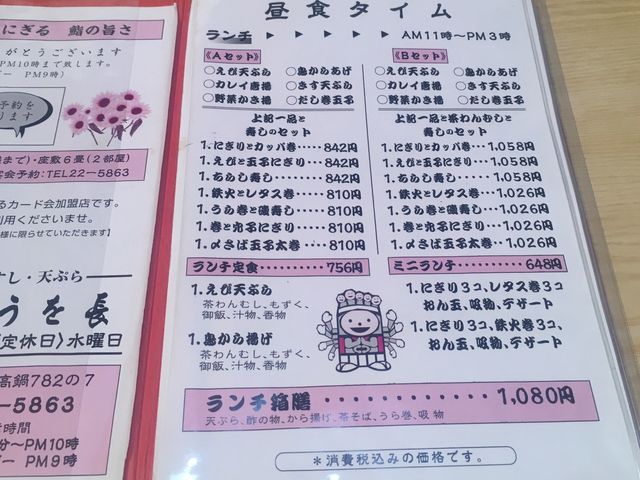 にぎる 鮨の旨さ
がとうございます
PM10時まで致します。
ー PM9時)
予約を
ります
まで)・座敷6畳(2部屋)
宴会予約:TEL22-5863
るカード会加盟店です。
利用くださいませ。
様に限らせていただきます】
すし・天ぷら
うを長
〈定休日〉水曜日
高鍋782の7
-5863
時間
分〜PM10時
ー PM9時
昼食タイム
ランチ ▶ ▶ ▶ ▶ ▶ AM11時〜PM3時
《Aセット》
○えび天ぷら ○鳥からあげ
○カレイ唐揚 ○きす天ぷら
○野菜かき揚 ○だし巻玉子
上記一品と
寿しのセット
1.にぎりとカッパ巻・・・・・842円
1.えびと玉子にぎり・・・・842円
1.ちらし寿し・・・・・・・・842円
1.鉄火とレタス巻・・・・・810円
1.うら巻と磯寿し・・・・・810円
1.巻と充名にぎり・・・・・810円
1.〆さば玉子太巻・・・・810円
《Bセット》
○えび天ぷら ○鳥からあげ
○カレイ唐揚 ○きす天ぷら
○野菜かき揚 ○だし巻玉子
上記一品と茶わんむしと
寿しのセット
1.にぎりとカッパ巻・・・1,058円
1.えびと玉子にぎり・・・1,058円
1.ちらし寿し・・・・・・1,058円
1.鉄火とレタス巻・・・1,026円
1.うら巻と磯寿し・・・1,026円
1.巻と充名にぎり・・・1,026円
1.〆さば玉子太巻・・・1,026円
ランチ定食・・・・・・・・・756円
1.えび天ぷら
茶わんむし、もずく、
御飯、汁物、香物
1.鳥から揚げ
茶わんむし、もずく、
御飯、汁物、香物
ミニランチ・・・・・・・・・648円
1.にぎり3コ、レタス巻3コ、
おん玉、吸物、デザート
1.にぎり3コ、鉄火巻3コ、
おん玉、吸物、デザート
ランチ箱膳・・・・・・・・・・・・1,080円
天ぷら、酢の物、から揚げ、茶そば、うら巻、吸物
＊消費税込みの価格です。